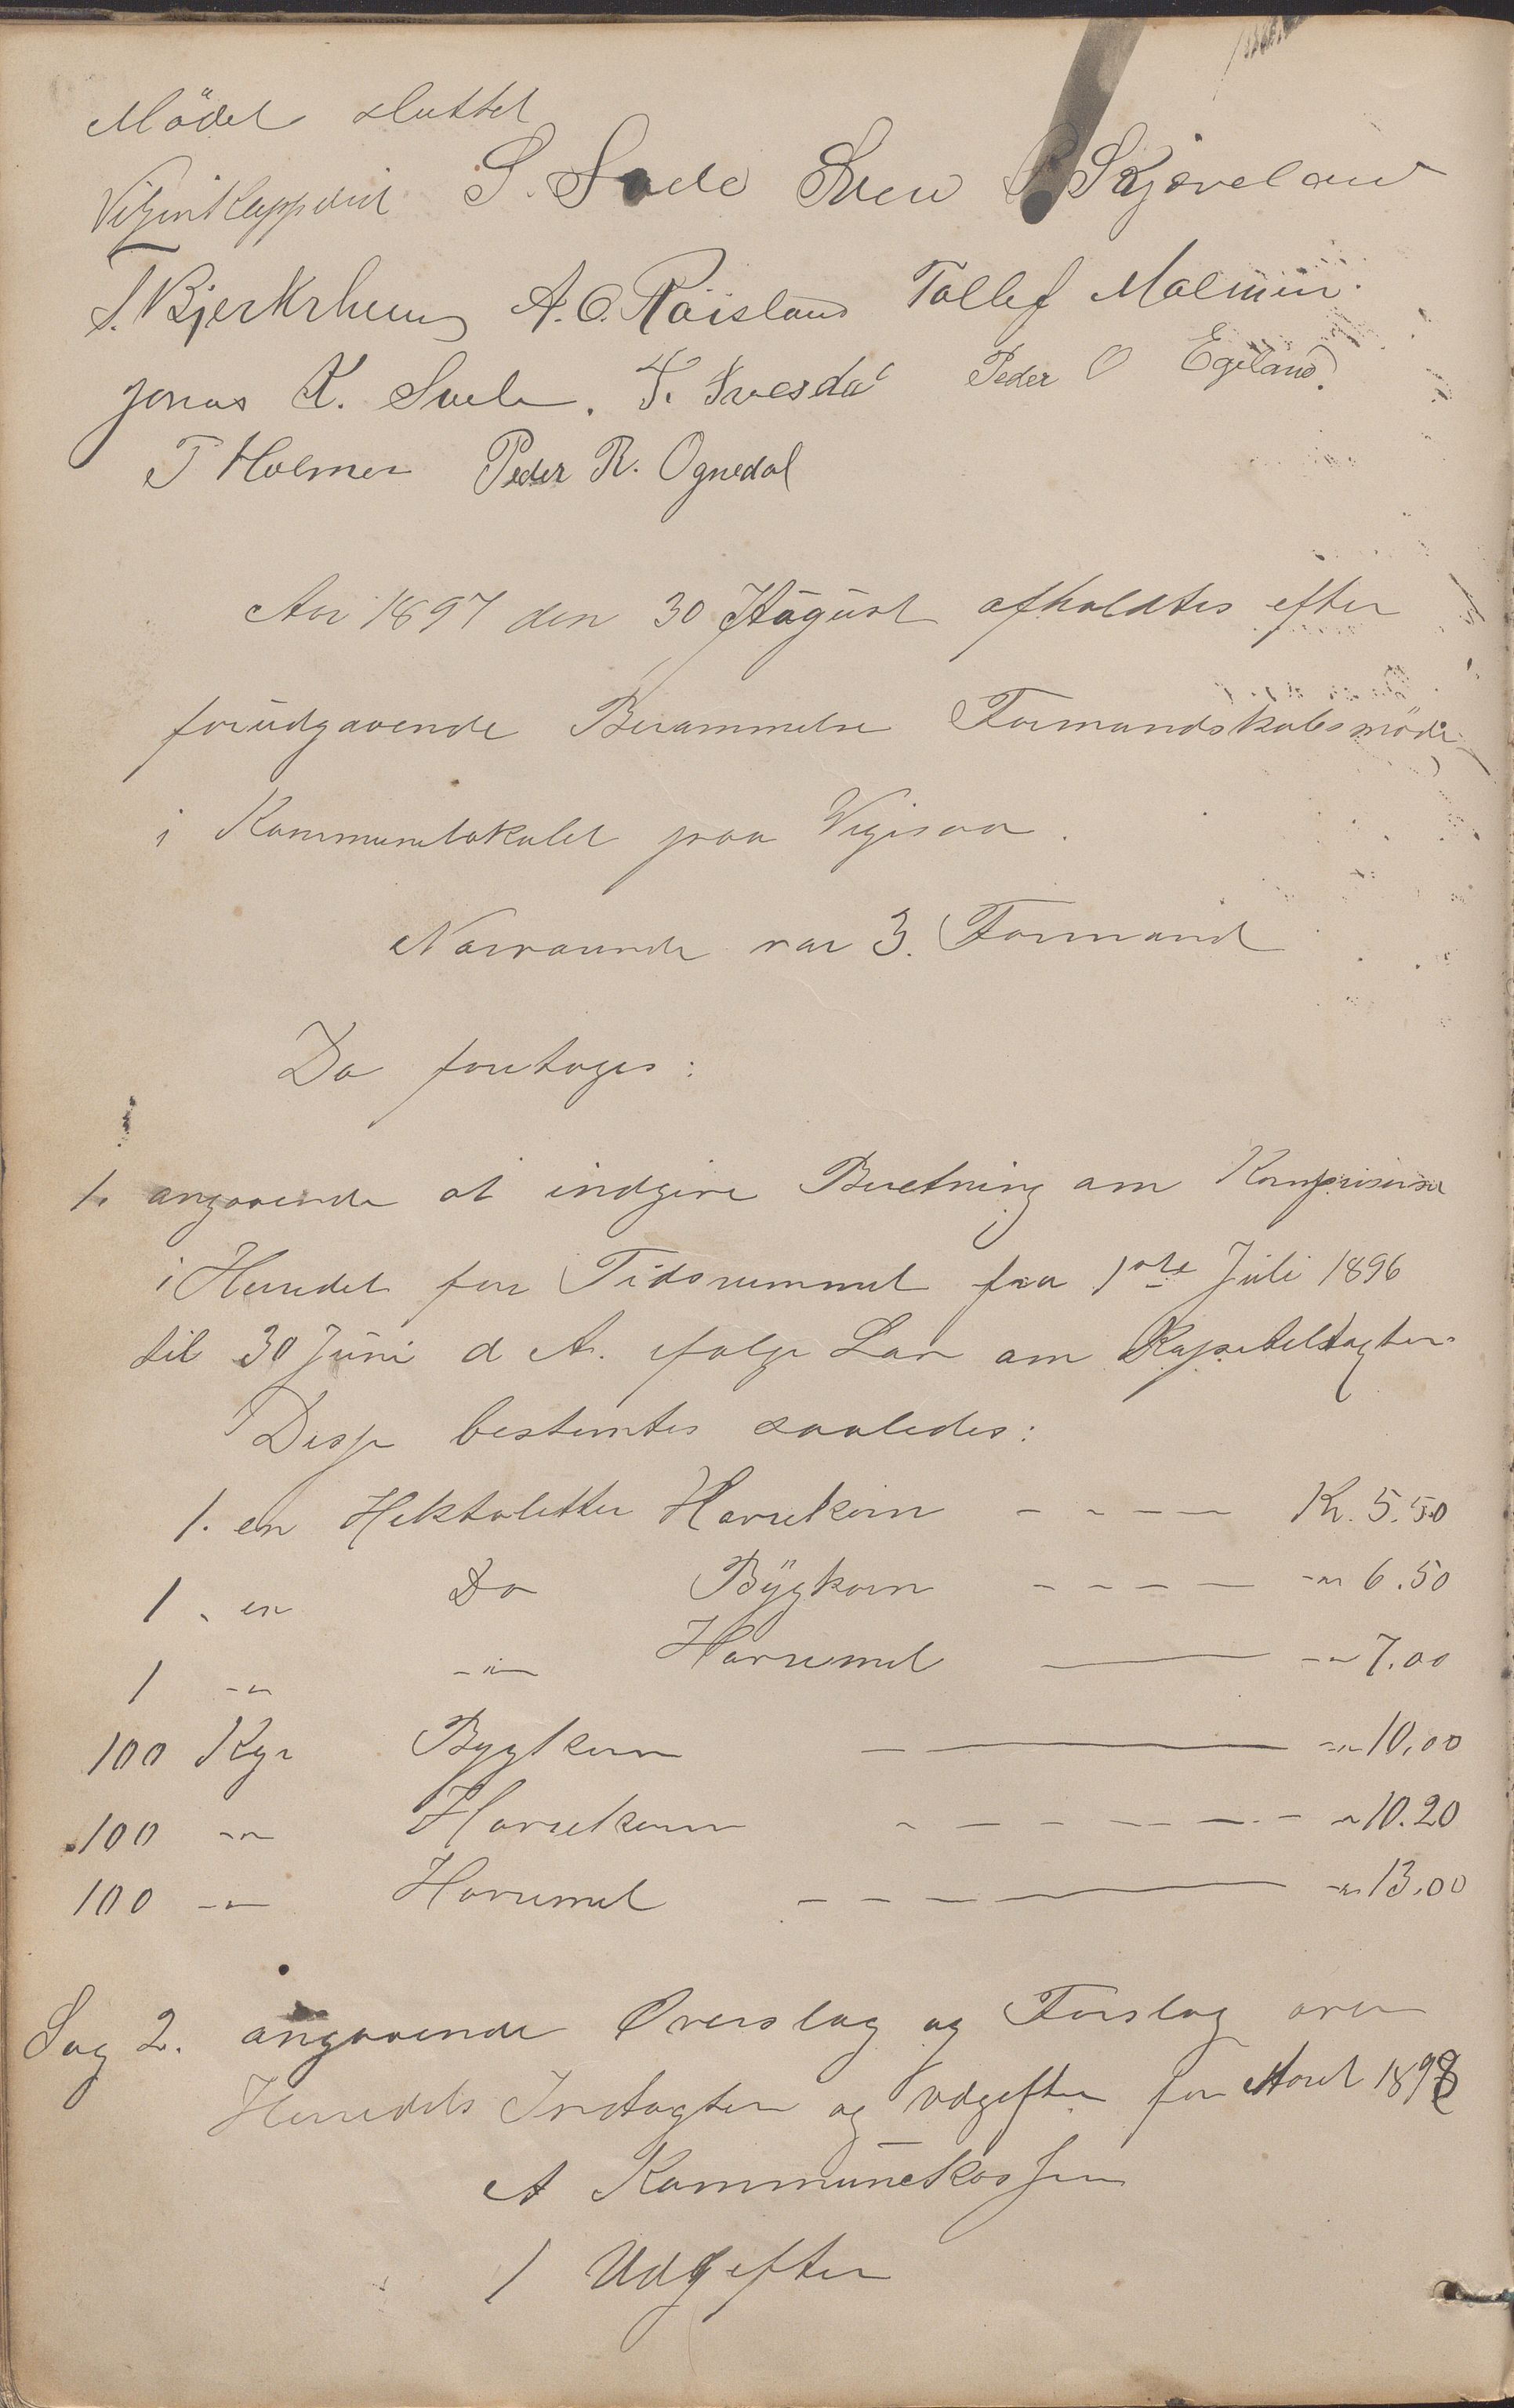 Mödet sluttet
S. Svele Sven S Skjæveland
S. Bjerkrheim A. O. Röisland Tollef Malmin.
Jonas K. Svele. T. Ivesdal Peder O Egeland.
T Holmen Peder R. Ognedal
Aar 1897 den 30 August afholdtes efter
forudgaaende Berammelse Formandskabsmöde
i Kommunelokalet paa Vigisaa.
Nærværende var 3. Formænd
Da foretoges:
1. angaaende at indgive Beretning om Kornpriserne
i Herredet for Tidsrummet fra 1ste Juli 1896
til 30 Juni d A. ifølge Lov om Kapiteltagter.
Disse bestemtes saaledes:
1. en Hektoletter Havrekorn - - - - Kr. 5.50
1. en Do Bÿgkorn - - - - -"- 6.50
1 -"- -"- Havremel — -"- 7.00
100 Kgr Bygkorn — -"- 10,00
100 -"- Havrekorn - - - - - - -"- 10.20
100 -"- Havremel - - - — -"- 13.00
Sag 2. angaaende Overslag og Forslag over
Herredets Indtægter og Udgifter for Aaret 1898
A Kommunekassen
1 Udgifter